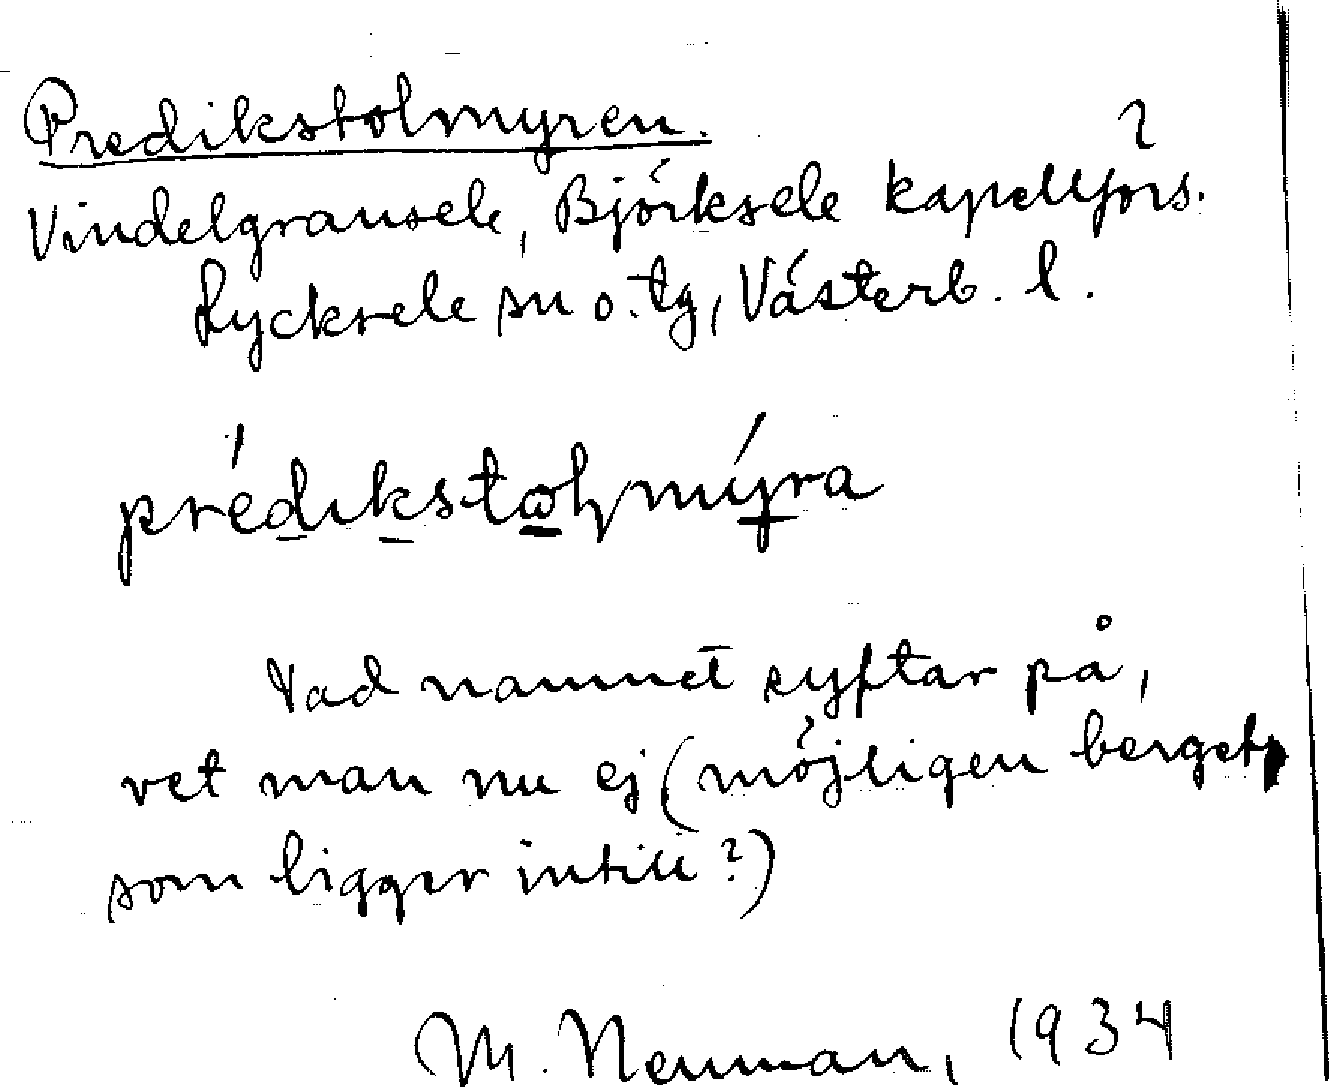 Predikstolmyren.
Vindelgransele, Björksele kapellförs.
Lycksele sn o. tg, Västerb. l.
prédikstωlmýra
Vad namnet syftar på,
vet man nu ej (möjligen berget,
som ligger intill?)
M. Neuman, 1934